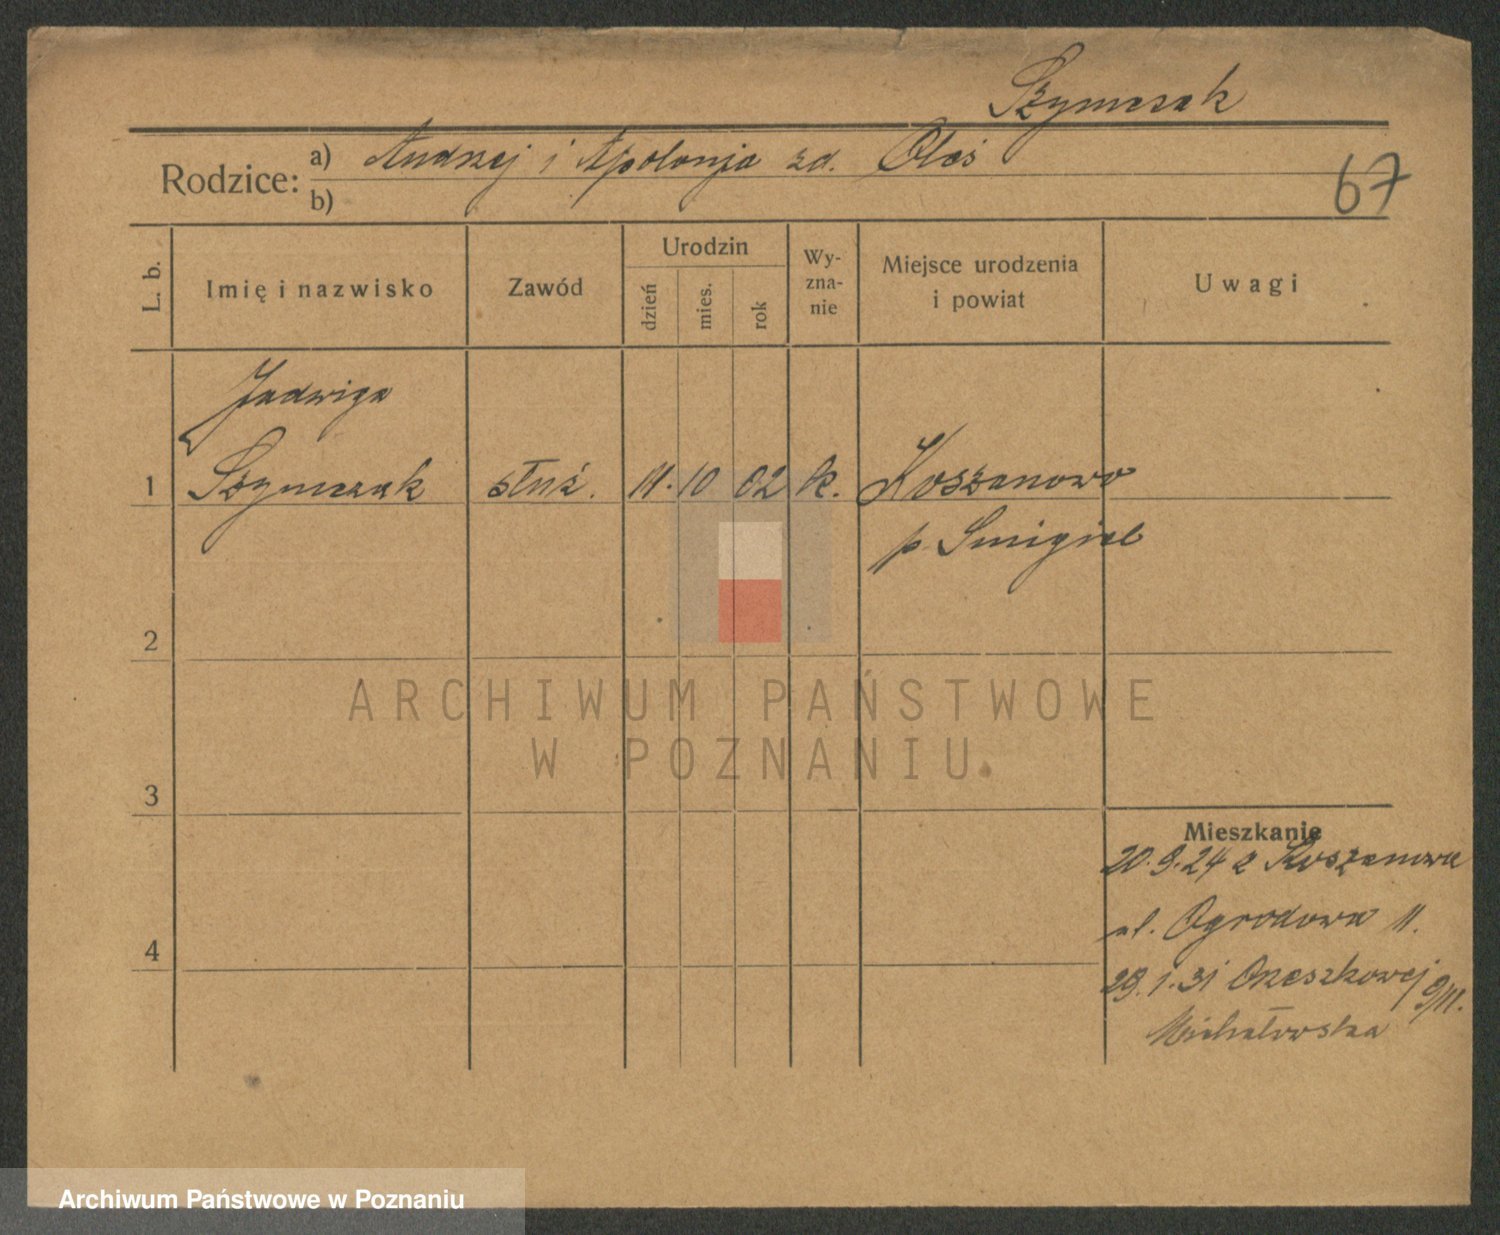 Szymczak
Rodzice: a) Andrzej i Apolonja zd. Oleś
b)
67
L. b. Imię i nazwisko Zawód Urodzin dzień mies. rok Wy-zna-nie Miejsce urodzenia i powiat Uwagi
Jadwiga
1 Szymczak służ. 11. 10 02 k. Koszanowo
p. Smigiel
2
ARCHIWUM PAŃSTWOWE
W POZNANIU
3
Mieszkanie
20.9.24 z Koszanowa
ul. Ogrodowa 11.
4
29.1.31 Orzeszkowej 9/11.
Michałowska
Archiwum Państwowe w Poznaniu